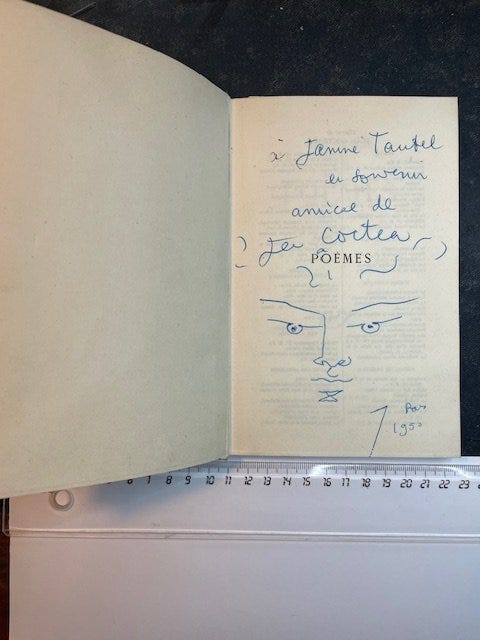 à Janine Tautel
en souvenir
amical de
Jean Cocteau
POÈMES
1950
6 7 8 9 10 11 12 13 14 15 16 17 18 19 20 21 22 23